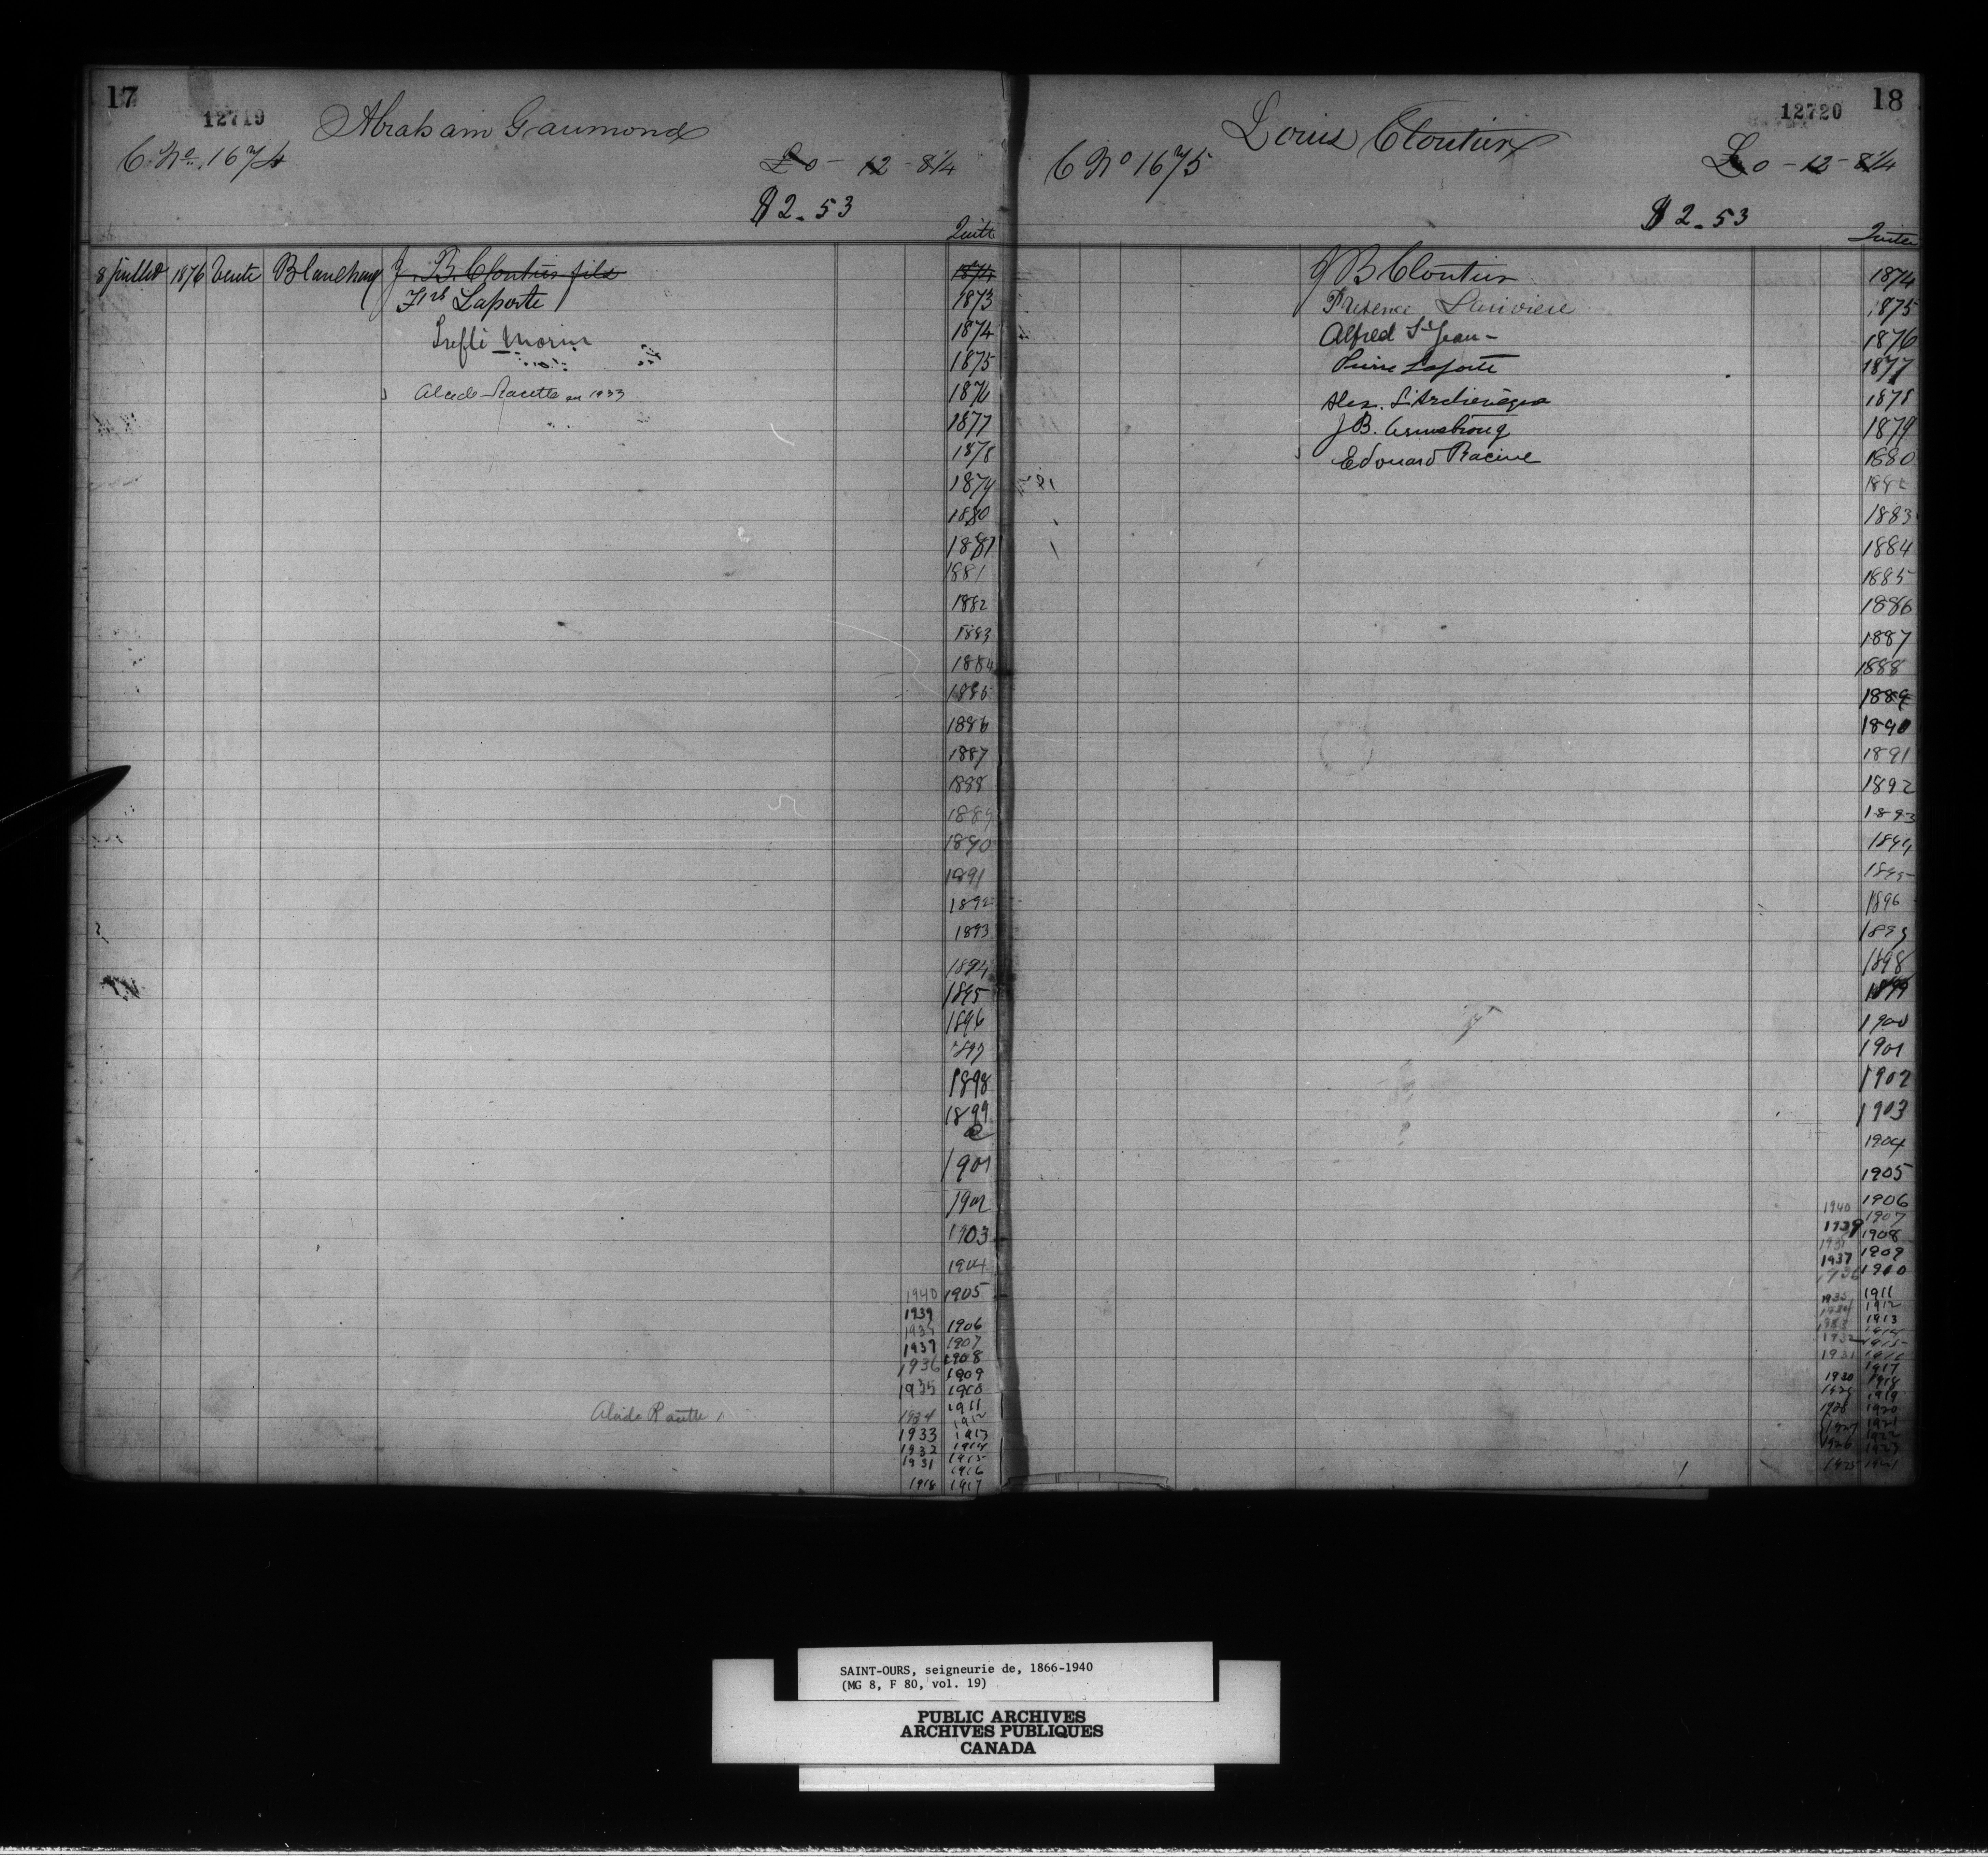 17
12719
Abraham Gaumond
C. No. 1674
£0 - 12 - 8 1/4
$2.53
Quitte
8 juillet 1876 Vente Blanchard J. B. Cloutier fils 1874
Frs Laporte 1873
Treflé Morin 1874
1875
Alcide Racette en 1933 1876
1877
1878
1879
1880
1881
1881
1882
1883
1884
1885
1886
1887
1888
1889
1890
1891
1892
1893
1894
1895
1896
1897
1898
1899
1901
1902
1903
1904
1940 1905
1939
1938 1906
1937 1907
1936 1908
1909
1935 1910
1911
Alcide Racette 1934 1912
1933 1913
1932 1914
1931 1915
1916
1918 1917
18
12720
Louis Cloutier
C No 1675
£0 - 12 - 8 1/4
$2.53
Quitte
J B Cloutier 1874
Larivière 1875
Alfred St Jean - 1876
Pierre Laporte 1877
Alex. L'Archevêque 1878
J B. Armstrong 1879
Edouard Racine 1880
1882
1883
1884
1885
1886
1887
1888
1889
1890
1891
1892
1893
1894
1895
1896
1897
1898
1899
1900
1901
1902
1903
1904
1905
1906
1940 1907
1939 1908
1938 1909
1937 1910
1936
1935 1911
1934 1912
1933 1913
1932 1914
1915
1931 1916
1917
1930 1918
1929 1919
1928 1920
1927 1921
1922
1926 1923
1925
SAINT-OURS, seigneurie de, 1866-1940
(MG 8, F 80, vol. 19)
PUBLIC ARCHIVES
ARCHIVES PUBLIQUES
CANADA